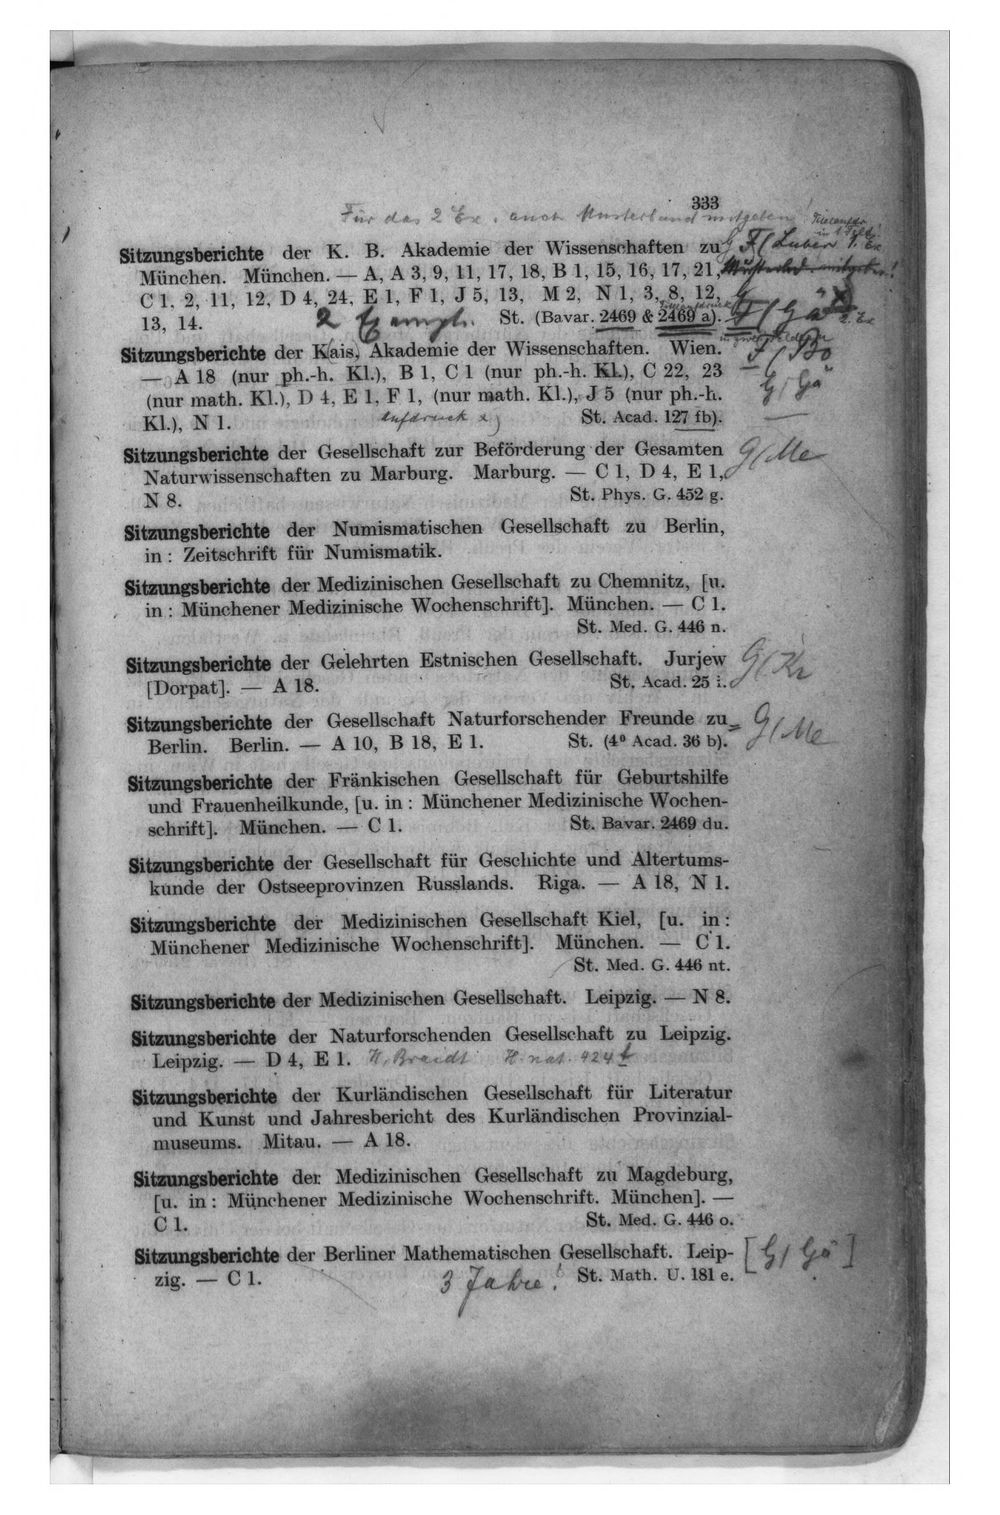 333
Für das 2 Ex. auch Musterband mitgeben!
Sitzungsberichte der K. B. Akademie der Wissenschaften zu
München. München. — A, A 3, 9, 11, 17, 18, B 1, 15, 16, 17, 21,
C 1, 2, 11, 12, D 4, 24, E 1, F 1, J 5, 13, M 2, N 1, 3, 8, 12,
13, 14. 2 Exempl. St. (Bavar. 2469 & 2469 a).
Sitzungsberichte der Kais. Akademie der Wissenschaften. Wien. F/Bo
— A 18 (nur ph.-h. Kl.), B 1, C 1 (nur ph.-h. Kl.), C 22, 23
(nur math. Kl.), D 4, E 1, F 1, (nur math. Kl.), J 5 (nur ph.-h. G/Gä
Kl.), N 1. Aufdruck St. Acad. 127 fb).
Sitzungsberichte der Gesellschaft zur Beförderung der Gesamten G/Me
Naturwissenschaften zu Marburg. Marburg. — C 1, D 4, E 1,
N 8. St. Phys. G. 452 g.
Sitzungsberichte der Numismatischen Gesellschaft zu Berlin,
in : Zeitschrift für Numismatik.
Sitzungsberichte der Medizinischen Gesellschaft zu Chemnitz, [u.
in : Münchener Medizinische Wochenschrift]. München. — C 1.
St. Med. G. 446 n.
Sitzungsberichte der Gelehrten Estnischen Gesellschaft. Jurjew G/Kr
[Dorpat]. — A 18. St. Acad. 25 i.
Sitzungsberichte der Gesellschaft Naturforschender Freunde zu G/Me
Berlin. Berlin. — A 10, B 18, E 1. St. (4⁰ Acad. 36 b).
Sitzungsberichte der Fränkischen Gesellschaft für Geburtshilfe
und Frauenheilkunde, [u. in : Münchener Medizinische Wochen-
schrift]. München. — C 1. St. Bavar. 2469 du.
Sitzungsberichte der Gesellschaft für Geschichte und Altertums-
kunde der Ostseeprovinzen Russlands. Riga. — A 18, N 1.
Sitzungsberichte der Medizinischen Gesellschaft Kiel, [u. in :
Münchener Medizinische Wochenschrift]. München. — C 1.
St. Med. G. 446 nt.
Sitzungsberichte der Medizinischen Gesellschaft. Leipzig. — N 8.
Sitzungsberichte der Naturforschenden Gesellschaft zu Leipzig.
Leipzig. — D 4, E 1. H. nat. 424 t
Sitzungsberichte der Kurländischen Gesellschaft für Literatur
und Kunst und Jahresbericht des Kurländischen Provinzial-
museums. Mitau. — A 18.
Sitzungsberichte der Medizinischen Gesellschaft zu Magdeburg,
[u. in : Münchener Medizinische Wochenschrift. München]. —
C 1. St. Med. G. 446 o.
Sitzungsberichte der Berliner Mathematischen Gesellschaft. Leip- [G/Gä]
zig. — C 1. 3 Jahre! St. Math. U. 181 e.